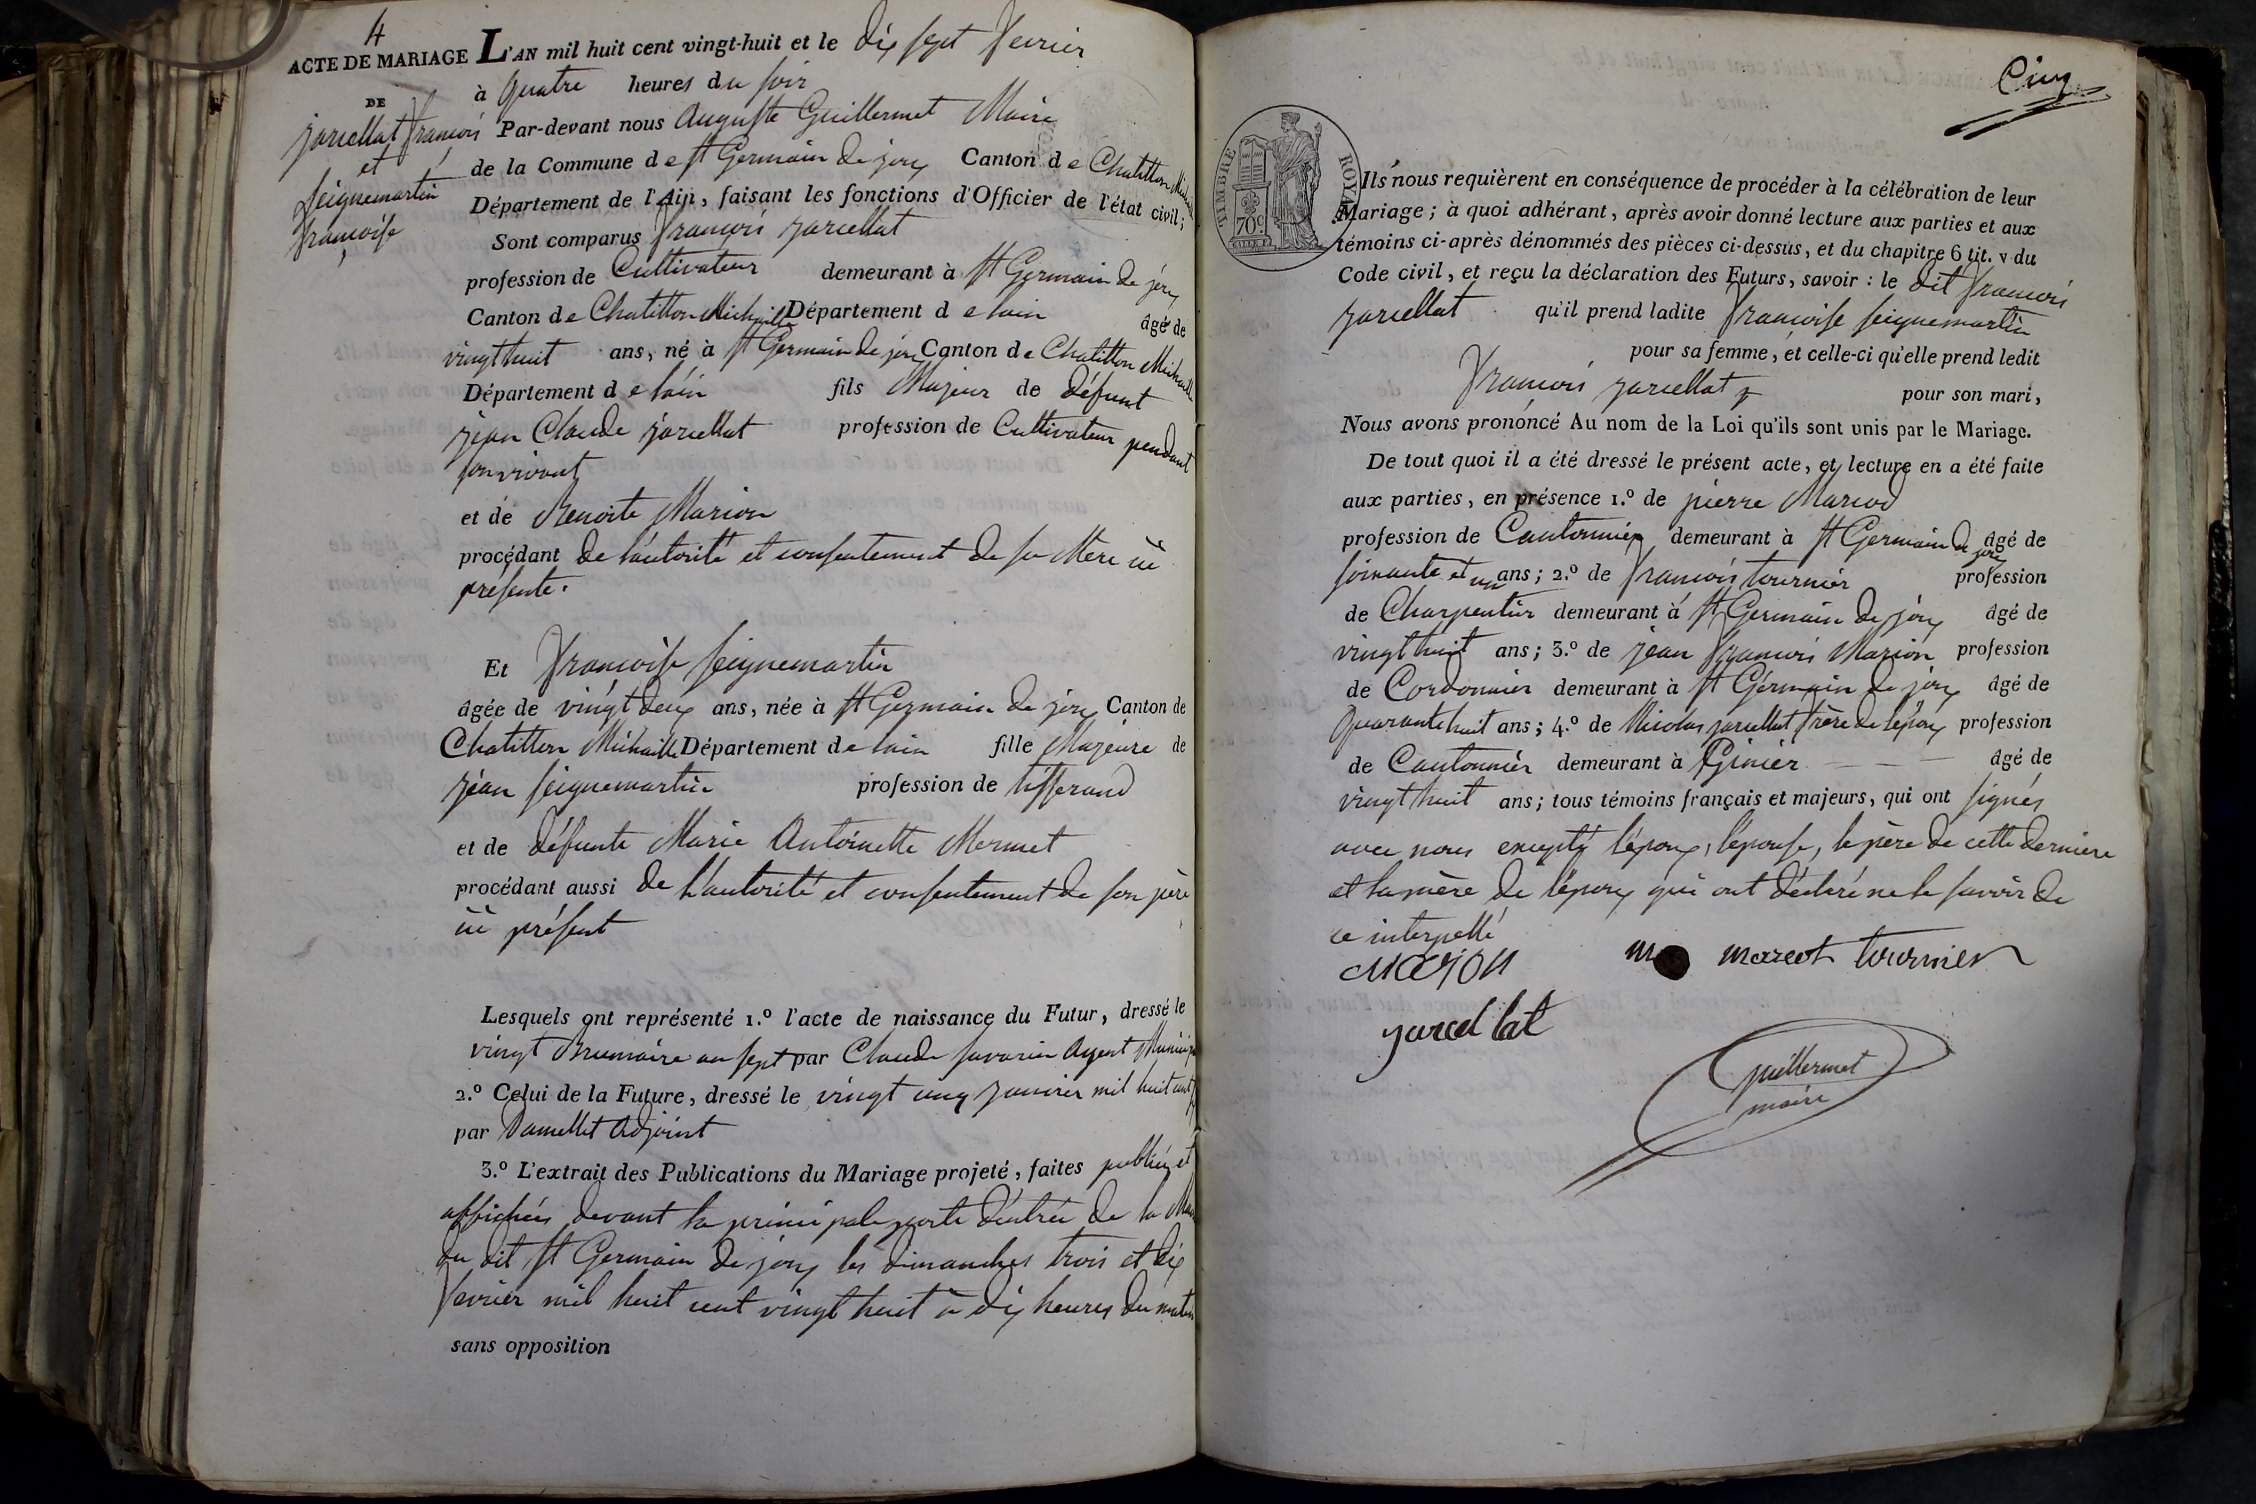 4
ACTE DE MARIAGE
DE
jarcellat françois
et
seignemartin
françoise
L'AN mil huit cent vingt-huit et le dix sept fevrier
à quatre heures du soir
Par-devant nous Auguste Guillermet Maire
de la Commune de st Germain de joux Canton de Chatillon Michaille
Département de l'Ain, faisant les fonctions d'Officier de l'état civil;
Sont comparus françois jarcellat
profession de Cultivateur demeurant à st Germain de joux
Canton de Chatillon Michaille Département de lain âgé de
vingt huit ans, né à st Germain de joux Canton de Chatillon Michaille
Département de lain fils Majeur de défunt
jean Claude jarcellat profession de Cultivateur pendant
son vivant
et de Benoite Marion
procédant de l'autorité et consentement de sa Mère ici
présente.
Et françoise seignemartin
âgée de vingt deux ans, née à st Germain de joux Canton de
Chatillon Michaille Département de lain fille Majeure de
jean seignemartin profession de tisserand
et de défunte Marie Antoinette Mermet
procédant aussi de L'autorité et consentement de son père
ici présent
Lesquels ont représenté 1.º l'acte de naissance du Futur, dressé le
vingt Brumaire an sept par Claude savarin Agent
2.º Celui de la Future, dressé le vingt cinq janvier mil huit cent
par Adjoint
3.º L'extrait des Publications du Mariage projeté, faites publiés et
affichées devant la principale porte d'entrée de la
du dit st Germain de joux les dimanches trois et dix
fevrier mil huit cent vingt huit à dix heures du matin
sans opposition
Cinq
TIMBRE ROYAL
70 C.
Ils nous requièrent en conséquence de procéder à la célébration de leur
Mariage; à quoi adhérant, après avoir donné lecture aux parties et aux
témoins ci-après dénommés des pièces ci-dessus, et du chapitre 6 tit. v du
Code civil, et reçu la déclaration des Futurs, savoir : le dit françois
jarcellat qu'il prend ladite françoise seignemartin
pour sa femme, et celle-ci qu'elle prend ledit
françois jarcellat pour son mari,
Nous avons prononcé Au nom de la Loi qu'ils sont unis par le Mariage.
De tout quoi il a été dressé le présent acte, et lecture en a été faite
aux parties, en présence 1.º de pierre Marcod
profession de Cantonnier demeurant à st Germain de joux âgé de
soixante et un ans; 2.º de françois tournier profession
de Charpentier demeurant à st Germain de joux âgé de
vingt huit ans; 3.º de jean françois Marion profession
de Cordonnier demeurant à st Germain de joux âgé de
quarante huit ans; 4.º de Nicolas jarcellat frère de l'époux profession
de Cantonnier demeurant à Ginier âgé de
vingt huit ans; tous témoins français et majeurs, qui ont signés
avec nous excepté l'époux, l'épouse, le père de cette dernière
et la mère de l'époux qui ont déclaré ne le savoir de
ce interpellé
marion marcot tournier
jarcellat
Guillermet
maire